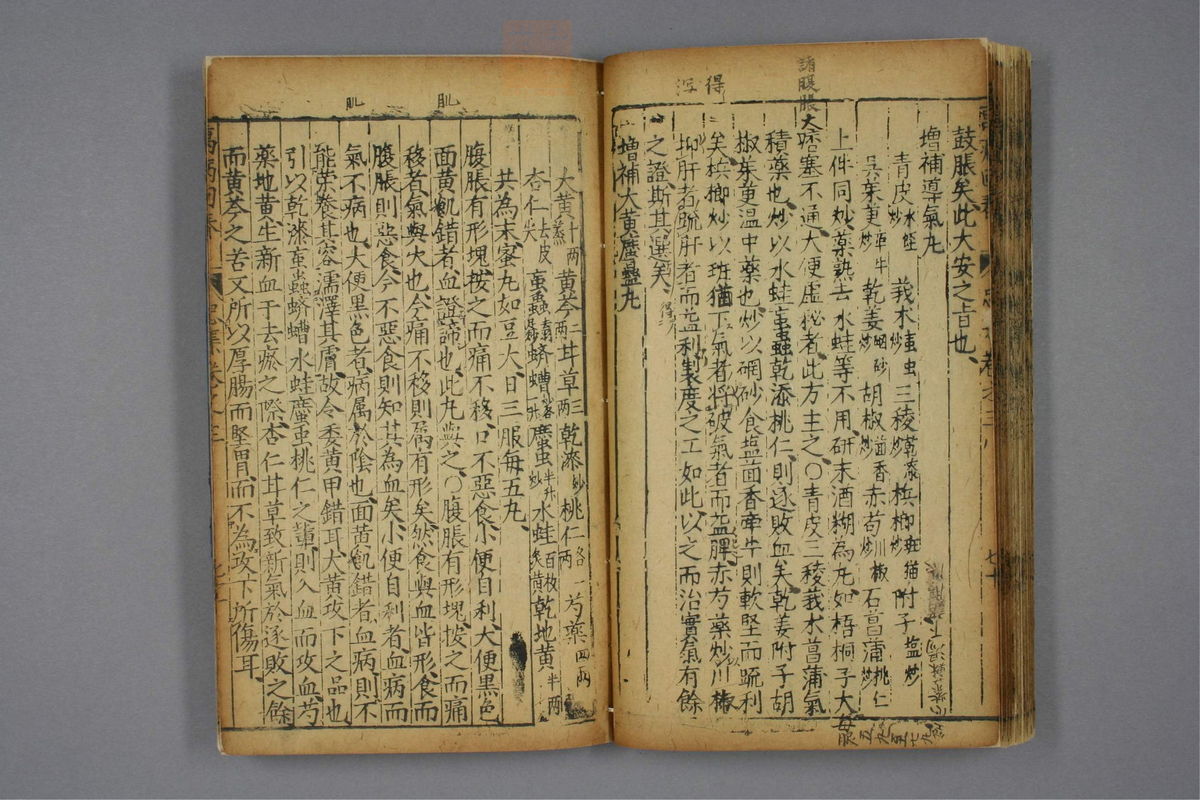 鼓脹矣此大安之旨也
增補導氣丸
青皮水蛭炒 莪朮䖟虫炒 三稜乾漆炒 梹榔斑猫炒 附子塩炒
吳茱萸牽牛炒 乾姜硇砂炒 胡椒茴香炒 赤芍川椒炒 石菖蒲桃仁
上件同炒藥熟去水蛙等不用研末酒糊為丸如梧桐子大每服
諸腹脹大
痞塞不通大便虛秘者此方主之○青皮三稜莪朮菖蒲氣
積藥也炒以水蛙䖟蟲乾漆桃仁則逐敗血矣乾姜附子胡
椒茱萸溫中藥也炒以硇砂食塩茴香牽牛則軟堅而疏利
矣梹榔炒以斑猫下氣者將破氣者而益脾赤芍藥炒川椒
抑肝者疏肝者而益利製度之工如此以之而治實氣有餘
之證斯其選矣
得
泻
增補大黃䗪蟲丸
大黃十兩蒸 黃芩二兩 甘草三兩 乾漆炒 桃仁各一兩 芍藥四兩
杏仁去皮尖 䖟蟲 蠐螬一升 䗪虫半升炒 水蛙百枚炙黃 乾地黃半兩
共為末蜜丸如豆大日三服每五丸
腹脹有形塊按之而痛不移口不惡食小便自利大便黑色
面黃飢錯者血證諦也此丸與之○腹脹有形塊按之而痛
移者氣與火也今痛不移則屬有形矣然食與血皆形食而
腹脹則惡食今不惡食則知其為血矣小便自利者血病而
氣不病也大便黑色者病属於陰也面黃飢錯者血病則不
能荣養其容濡澤其膚故令委黃甲錯耳大黃攻下之品也
引以乾漆䖟蟲蠐螬水蛙䗪虫桃仁之輩則入血而攻血芍
藥地黃生新血于去瘀之際杏仁甘草致新氣於逐敗之餘
而黃芩之苦又所以厚腸而堅胃而不為攻下所傷耳
肌
肌